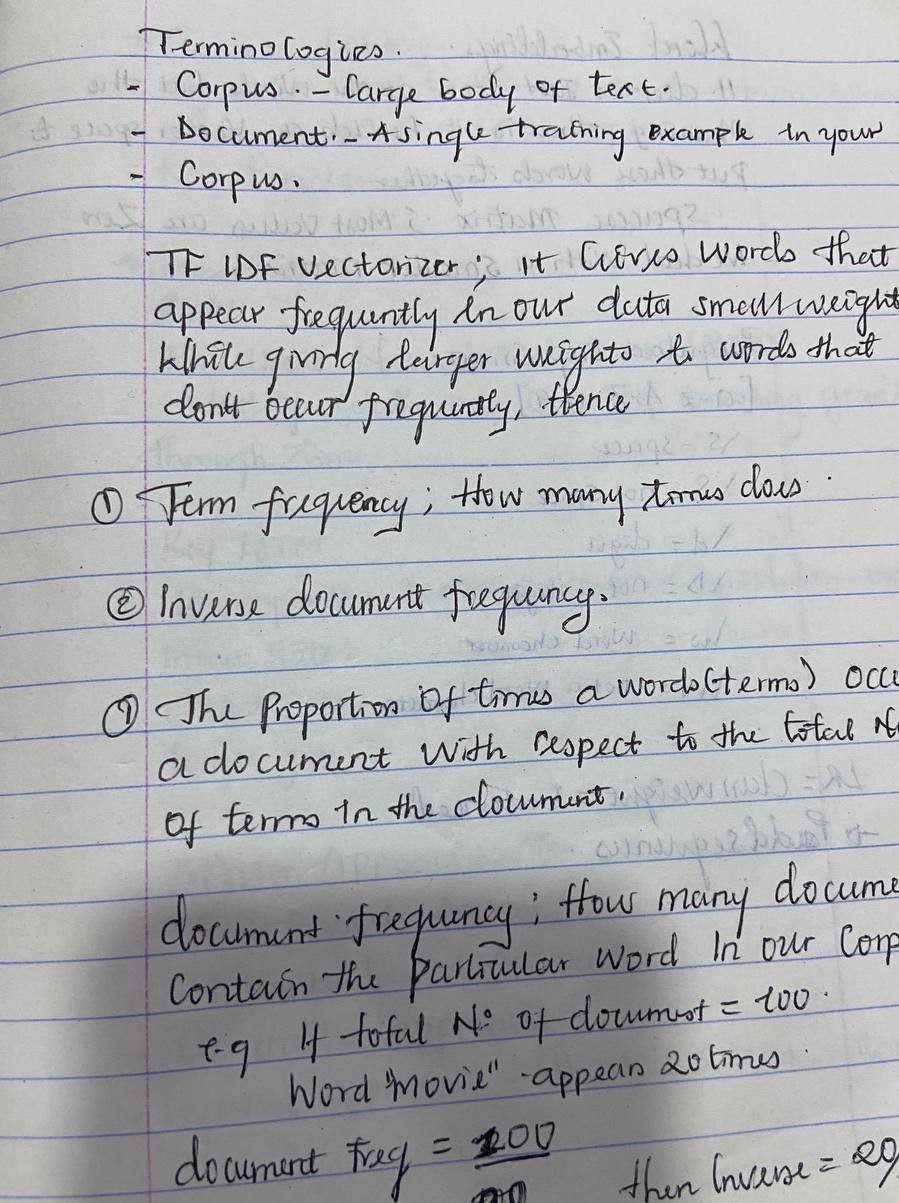 Terminologies.
- Corpus. - Large body of text.
- Document. - A single training example in your
- Corpus.
TF IDF Vectorizer; it Gives words that
appear frequently in our data small weight
While giving larger weights to words that
dont occur frequently, Hence
① Term frequency; How many times does.
② Inverse document frequency.
① The Proportion Of times a words(terms) occu
a document With respect to the total N
Of terms in the document.
document frequency; How many docume
Contain the particular word In our Corp
e.g If total No of document = 100.
Word "Movie" - appears 20 times.
document freq = 100
then Inverse = 20/